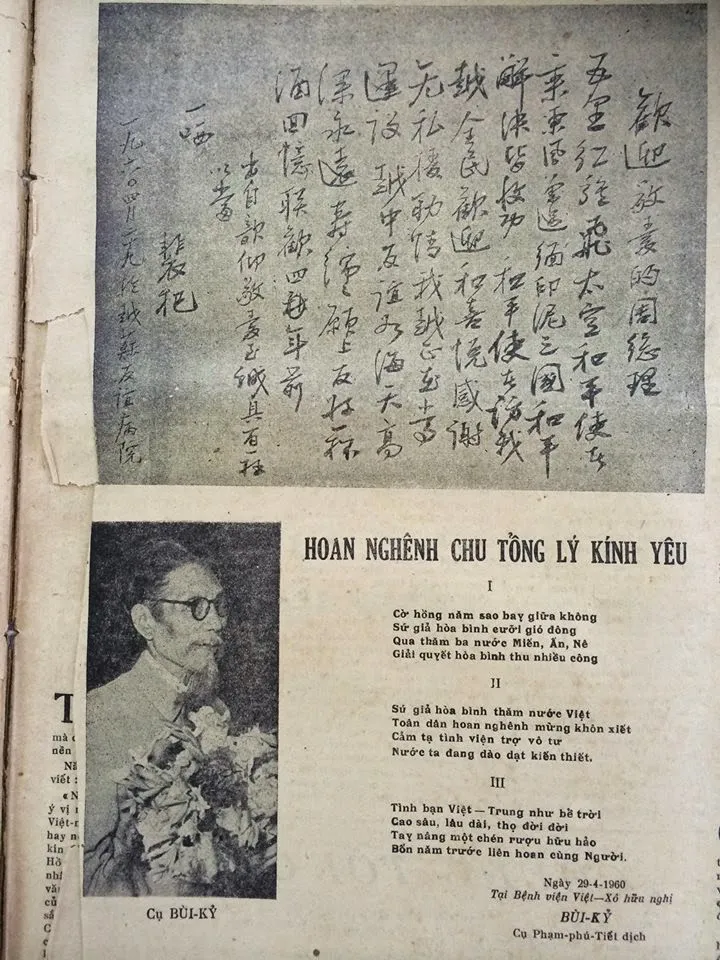 歡迎敬愛的周總理
五星紅旗飛太空和平使者
乘東風曾過緬印泥三國和平
解決皆收功 和平使者訪我
越全民歡迎和喜悅感謝
无私援助情我越正在
建設 越中友誼如海天高
深永遠壽 願上友好杯
酒回憶聯歡四年前
敬愛
一哂
裴杞
一九六〇四月二九於越蘇友誼病院
HOAN NGHÊNH CHU TỔNG LÝ KÍNH YÊU
I
Cờ hồng năm sao bay giữa không
Sứ giả hòa bình cưỡi gió đông
Qua thăm ba nước Miến, Ấn, Nê
Giải quyết hòa bình thu nhiều công
II
Sứ giả hòa bình thăm nước Việt
Toàn dân hoan nghênh mừng khôn xiết
Cảm tạ tình viện trợ vô tư
Nước ta đang dào dạt kiến thiết.
III
Tình bạn Việt — Trung như bể trời
Cao sâu, lâu dài, thọ đời đời
Tay nâng một chén rượu hữu hảo
Bốn năm trước liên hoan cùng Người.
Ngày 29-4-1960
Tại Bệnh viện Việt—Xô hữu nghị
BÙI-KỶ
Cụ Phạm-phú-Tiết dịch
Cụ BÙI-KỶ